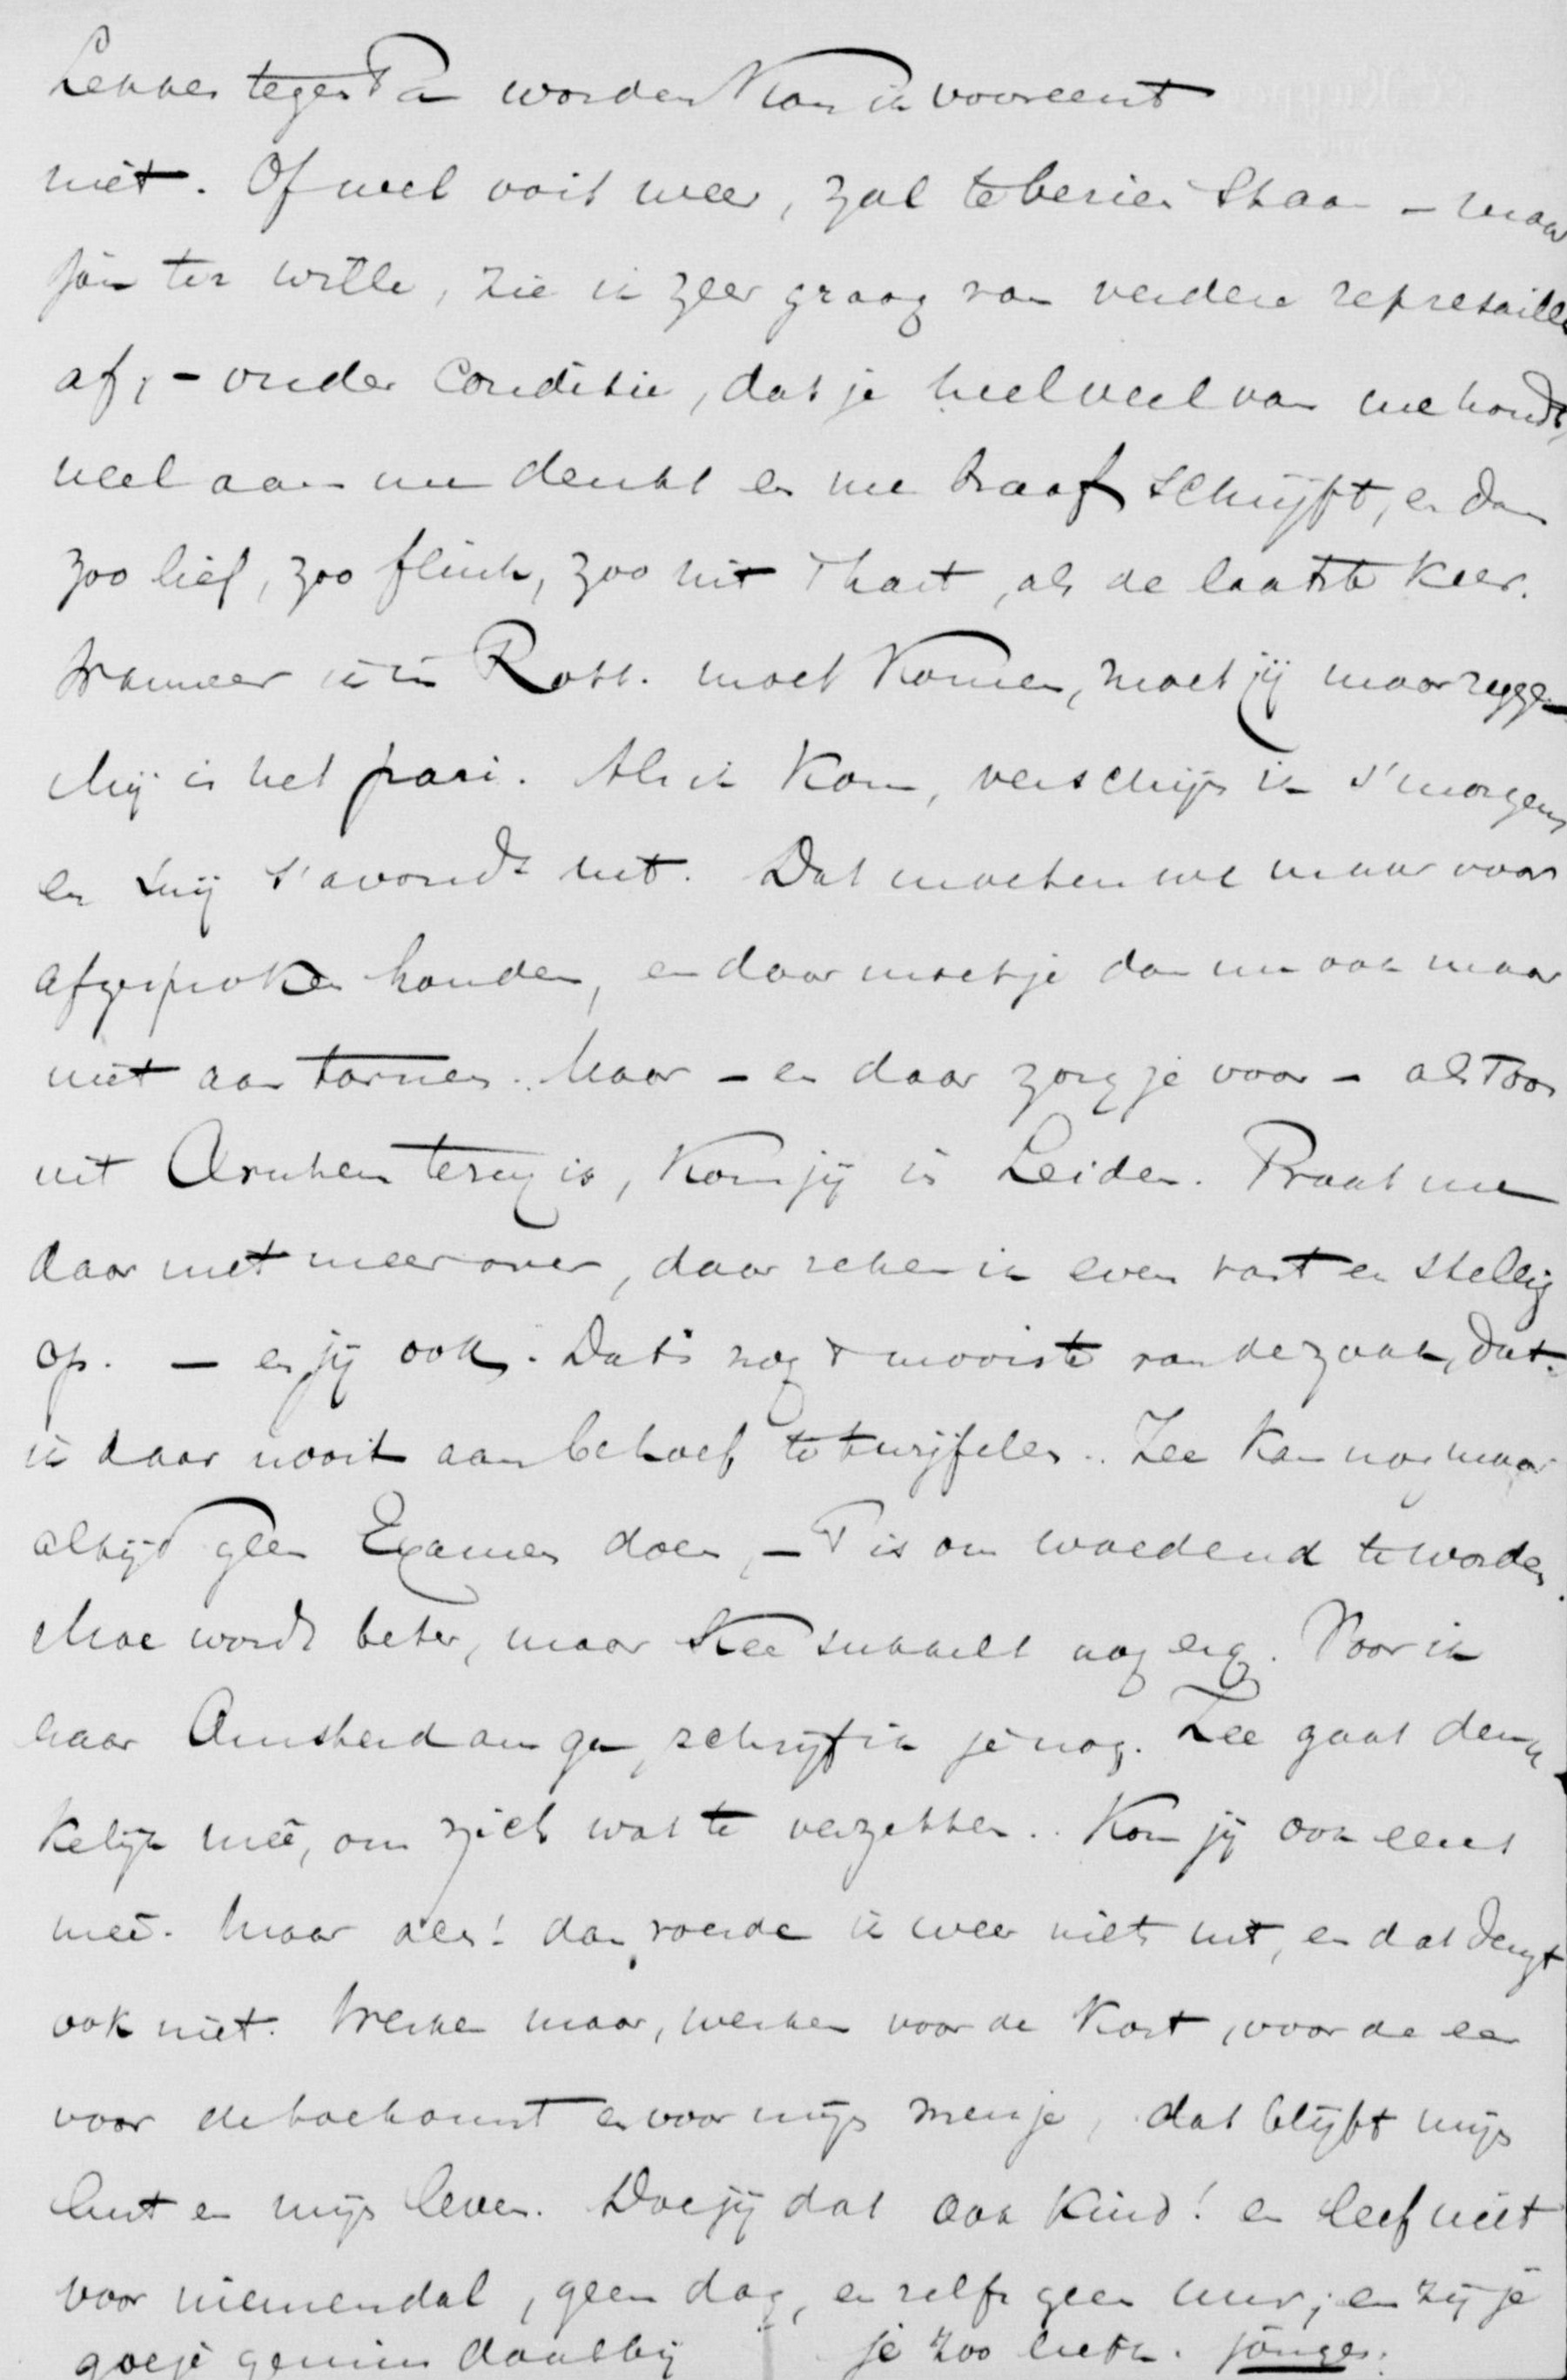 Lekker tegen Pa worden kan ik vooreerst
niet. Of wel ooit weer, zal te bezien staan – maar
jou ter wille, zie ik zeer graag van verdere represailles
af, – onder conditie, dat je heel veel van me houdt,
veel aan me denkt en me braaf schrijft, en dan
zoo lief, zoo flink, zoo uit 't hart, als de laatste keer.
Wanneer ik in Rott. moet komen, moet jij maar zeggen
Mij is het pari. Als ik kom, verschijn ik s'morgens
en knij s'avonds uit. Dat moeten we maar voor
afgesproken houden, en daar moet je dan nu ook maar
niet aan tornen. Maar – en daar zorg je voor – als Toos
uit Arnhem terug is, kom jij in Leiden. Praat me
daar niet meer over, daar reken ik even vast en stellig
op. – en jij ook. Dat's nog 't mooiste van de zaak, dat
ik daar nooit aan behoef te twijfelen. Zee kan nog maar
altijd geen Examen doen, – 't is om woedend te worden.
Moe wordt beter, maar Kee sukkelt nog erg. Voor ik
naar Amsterdam ga, schrijf ik je nog. Zee gaat denk
kelijk meê, om zich wat te verzetten. Kon jij ook eens
meê. Maar neen! dan voerde ik weer niets uit, en dat deugt
ook niet. Werken maar, werken voor de kost, voor de eer
voor de toekomst en voor mijn meisje, dat blijft mijn
lust en mijn leven. Doe jij dat ook kind! en leef niet
voor niemendal, geen dag, en zelfs geen uur; en zij je
goeje genius daarbij je zoo liefh. jongen.